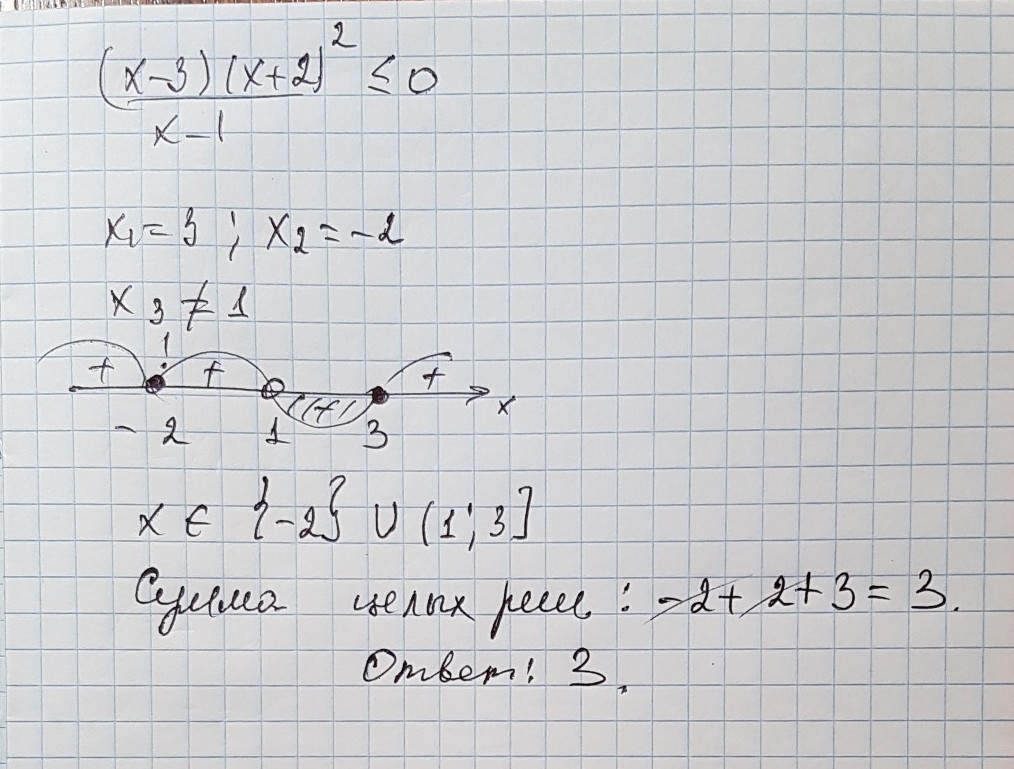 (x-3)(x+2)² ≤ 0
x-1
x₁=3 ; x₂=-2
x₃ ≠ 1
+ + +
-2 1 3 x
x ∈ {-2} ∪ (1;3]
Сумма целых реш.: -2+2+3=3.
Ответ: 3.